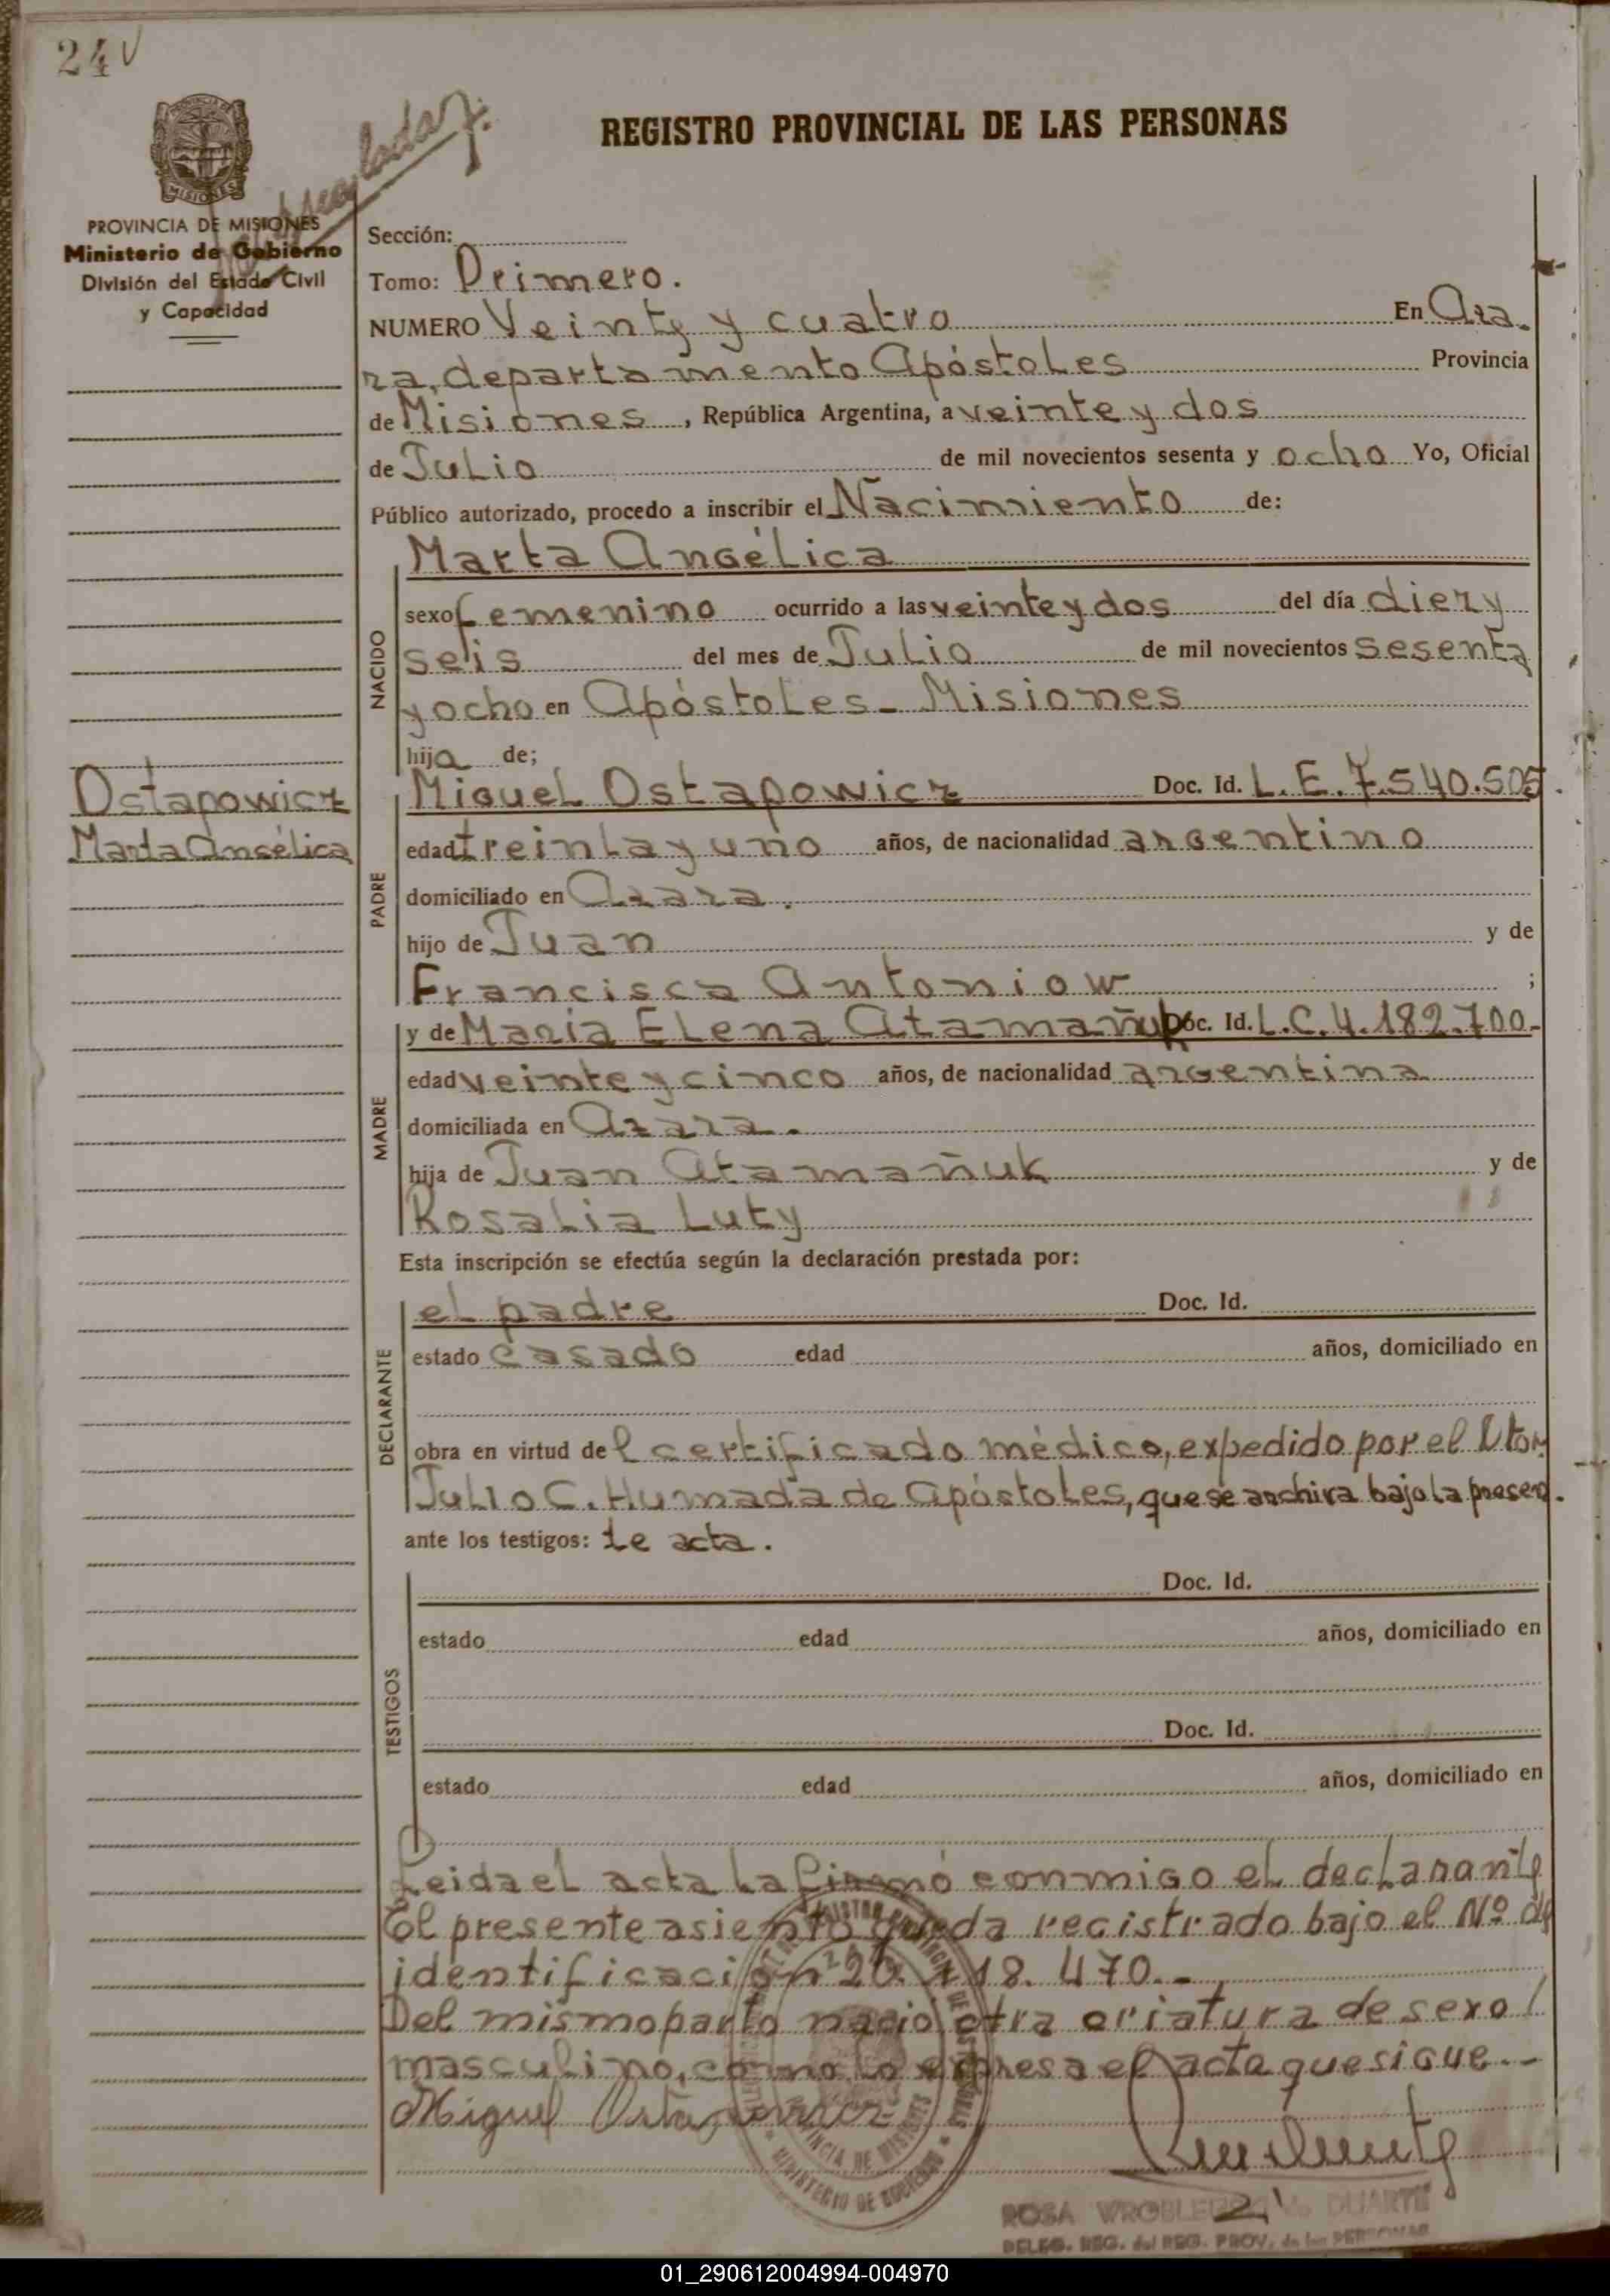 24
REGISTRO PROVINCIAL DE LAS PERSONAS
MISIONES
PROVINCIA DE MISIONES
Ministerio de Gobierno
División del Estado Civil
y Capacidad
Sección:
Tomo: Primero.
NUMERO Veinte y cuatro En Aza-
ra, departamento Apóstoles Provincia
de Misiones, República Argentina, a veinte y dos
de Julio de mil novecientos sesenta y ocho Yo, Oficial
Público autorizado, procedo a inscribir el Nacimiento de:
Marta Angélica
NACIDO
sexo femenino ocurrido a las veinte y dos del día diez y
seis del mes de Julio de mil novecientos sesenta
y ocho en Apóstoles - Misiones
hija de;
Ostapowicz
Marta Angélica
PADRE
Miguel Ostapowicz Doc. Id. L.E. 7.540.505
edad treinta y uno años, de nacionalidad argentino
domiciliado en Azara.
hijo de Juan y de
Francisca Antoniow ;
MADRE
y de María Elena Atamañuk Doc. Id. L.C.4.182.700-
edad veinte y cinco años, de nacionalidad argentina
domiciliada en Azara.
hija de Juan Atamañuk y de
Rosalia Luty
Esta inscripción se efectúa según la declaración prestada por:
DECLARANTE
el padre Doc. Id.
estado casado edad años, domiciliado en
obra en virtud del certificado médico, expedido por el Dtor.
Julio C. Humada de Apóstoles, que se archiva bajo la presen-
ante los testigos: te acta.
TESTIGOS
Doc. Id.
estado edad años, domiciliado en
Doc. Id.
estado edad años, domiciliado en
Leida el acta la firmó conmigo el declarante
El presente asiento queda registrado bajo el Nº de
identificación 20. 118. 470.-
Del mismo parto nació otra criatura de sexo
masculino, como lo expresa el acta que sigue.-
Miguel Ostapowicz
ROSA DUARTE
DELEG. REG. del REG. PROV. de las PERSONAS
01_290612004994-004970